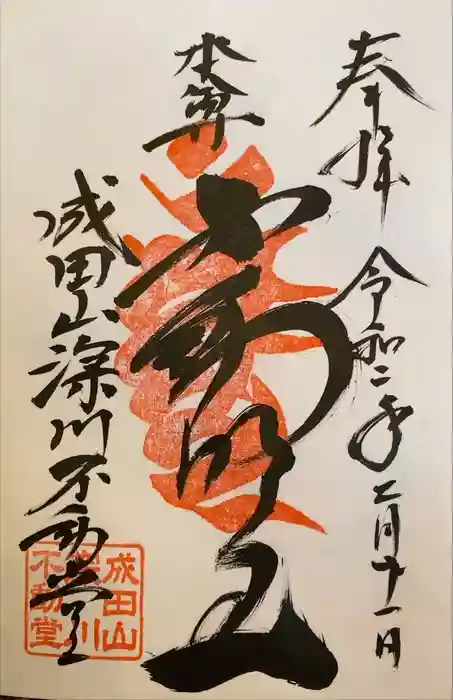 奉拝
令和二年七月十一日
本尊
不動明王
成田山深川不動堂
成田山
深川
不動堂